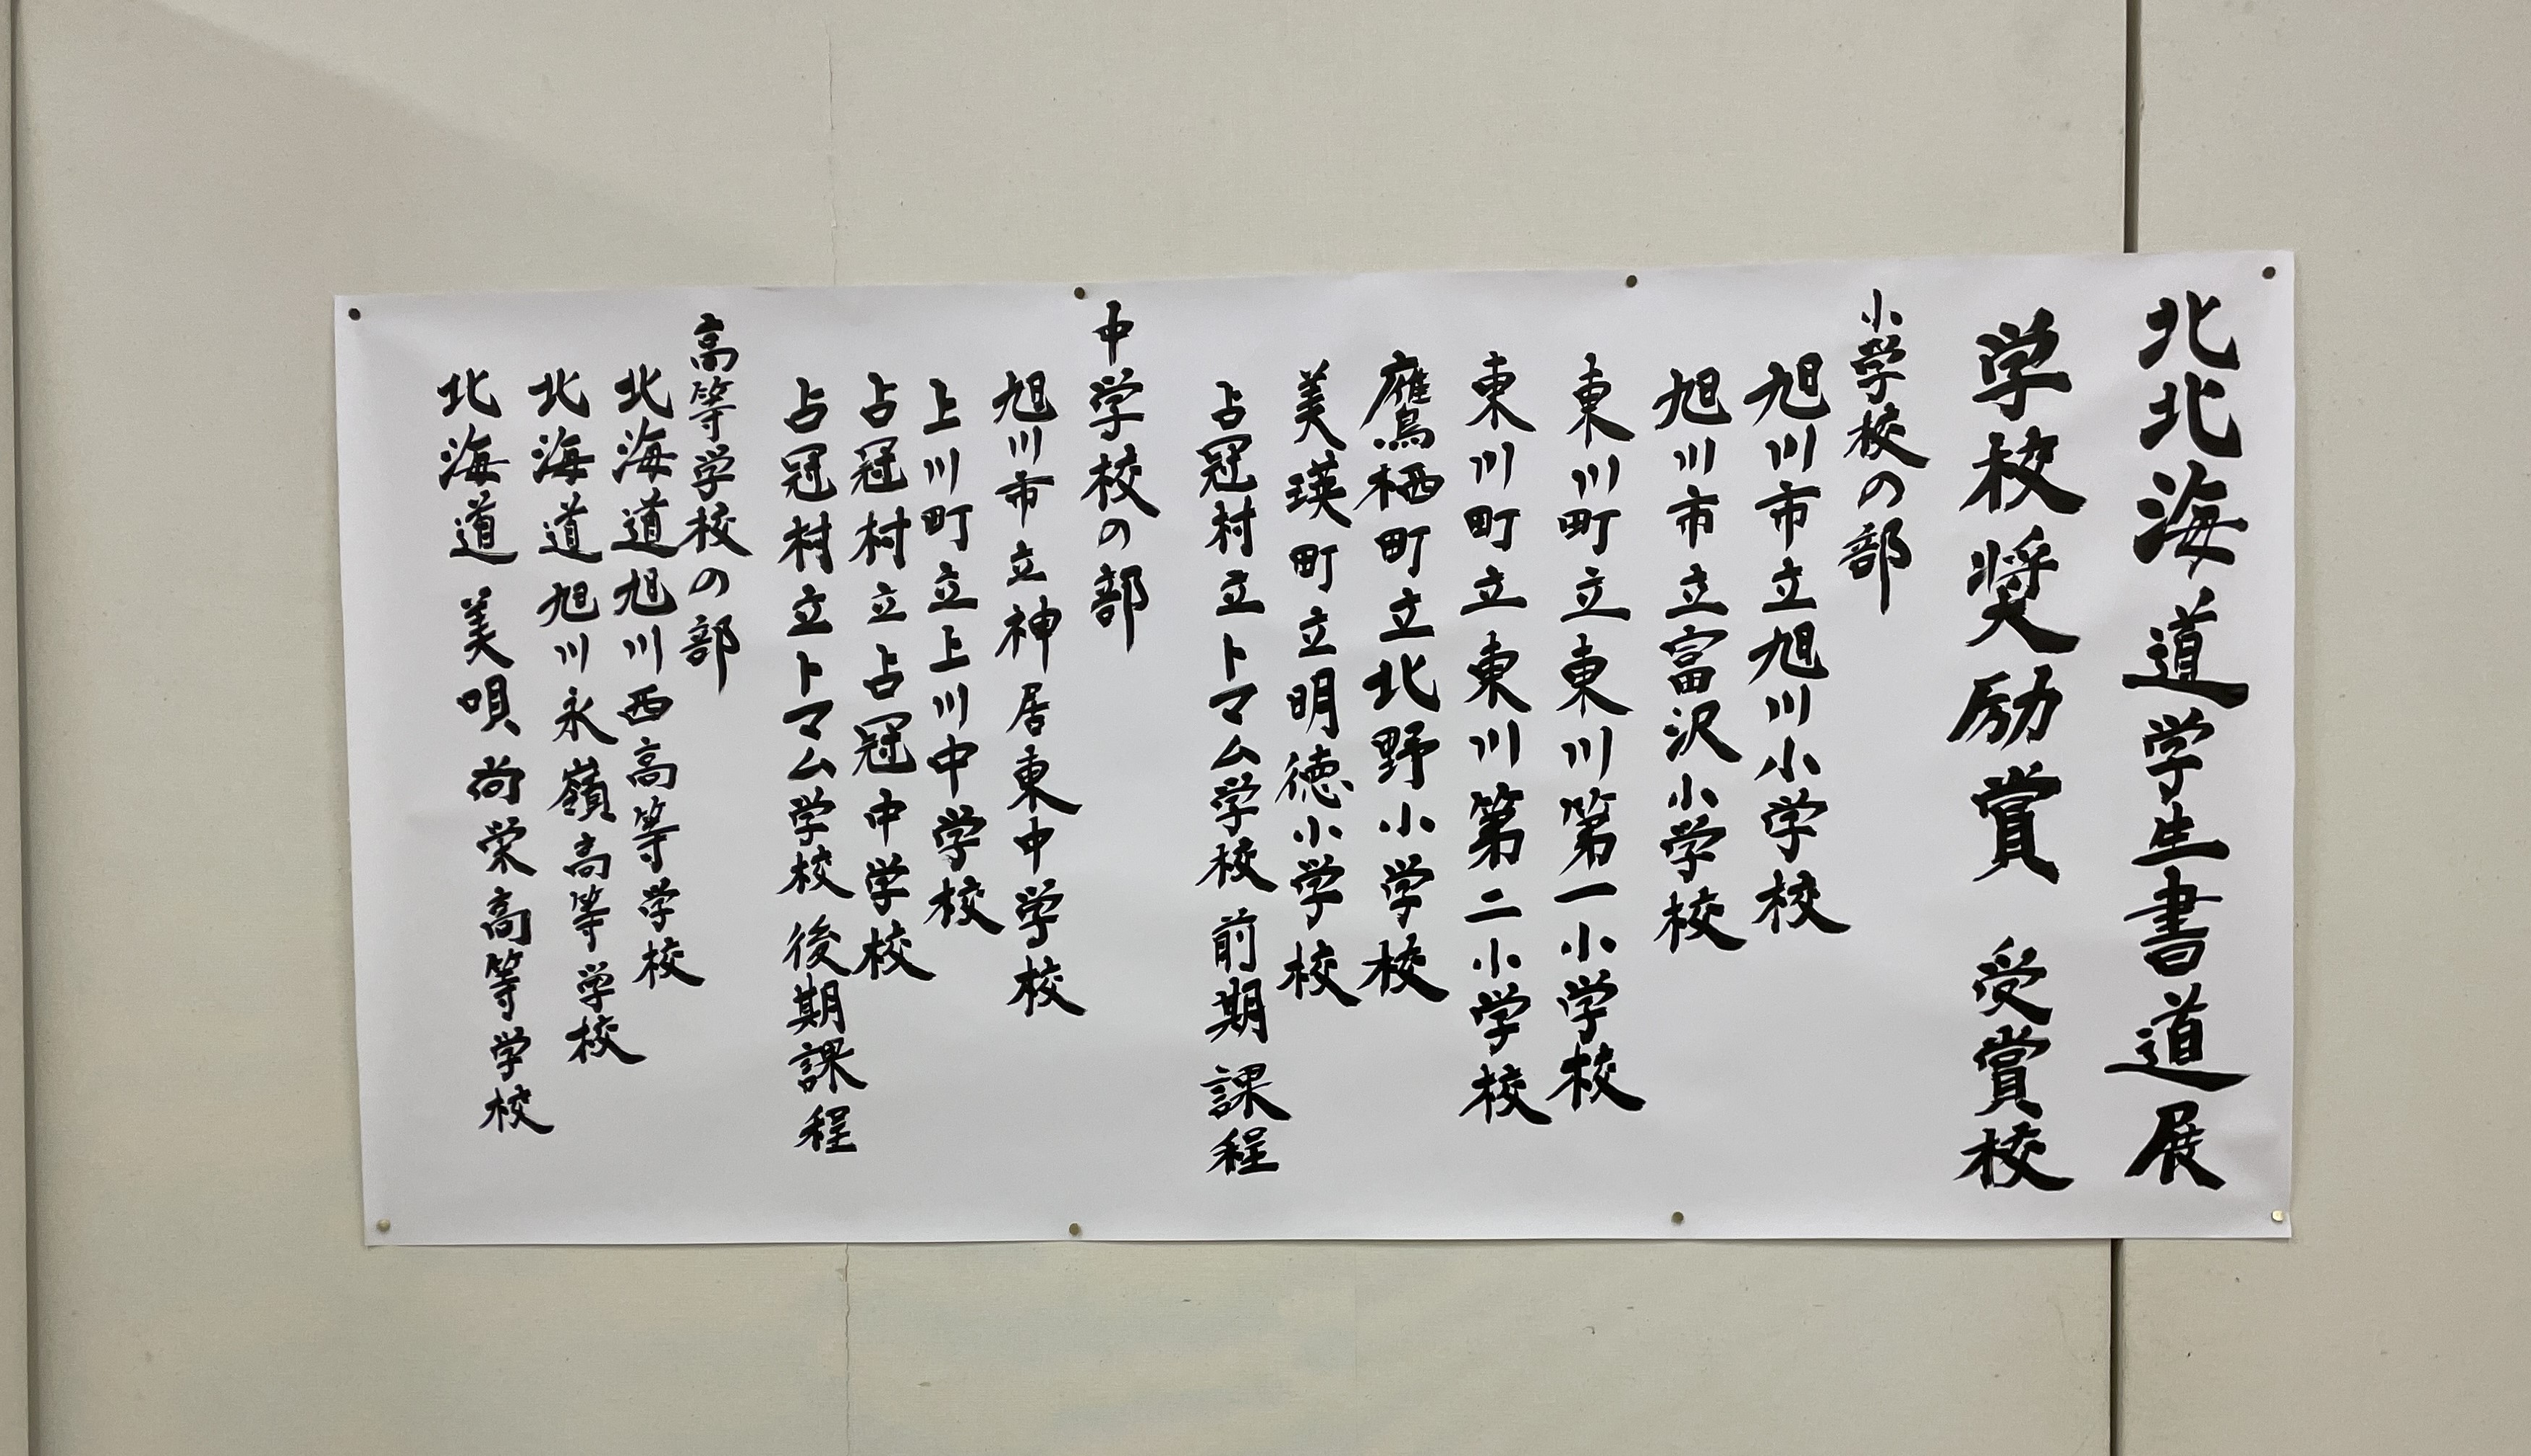 北北海道学生書道展
学校奨励賞 受賞校
小学校の部
旭川市立旭川小学校
旭川市立富沢小学校
東川町立東川第一小学校
東川町立東川第二小学校
鷹栖町立北野小学校
美瑛町立明徳小学校
占冠村立トマム学校 前期課程
中学校の部
旭川市立神居東中学校
上川町立上川中学校
占冠村立占冠中学校
占冠村立トマム学校 後期課程
高等学校の部
北海道旭川西高等学校
北海道旭川永嶺高等学校
北海道美唄尚栄高等学校